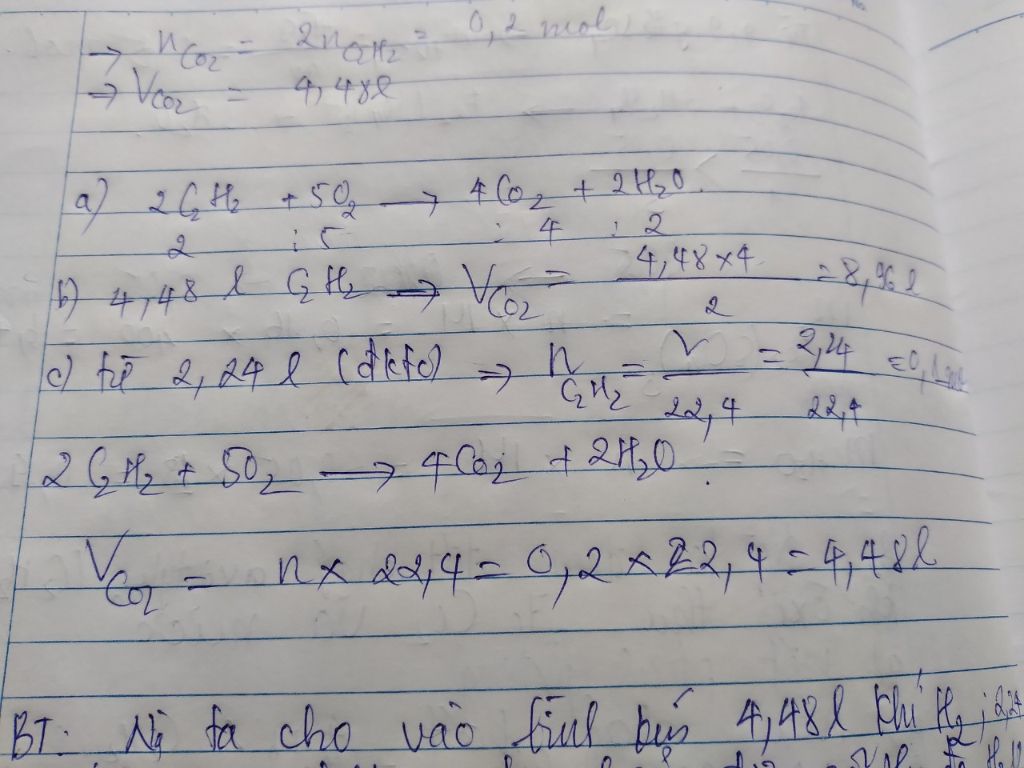 → nCO2 = 2nC2H2 = 0,2 mol
→ VCO2 = 4,48l
a) 2C2H2 + 5O2 → 4CO2 + 2H2O.
2 : 5 : 4 : 2
b) 4,48 l C2H2 → VCO2 = 4,48×4 / 2 = 8,96 l
c) từ 2,24 l (đktc) → nC2H2 = V / 22,4 = 2,24 / 22,4 = 0,1 mol
2C2H2 + 5O2 → 4CO2 + 2H2O.
VCO2 = n × 22,4 = 0,2 × 22,4 = 4,48l
BT: ta cho vào 4,48l khí H2; 2,24